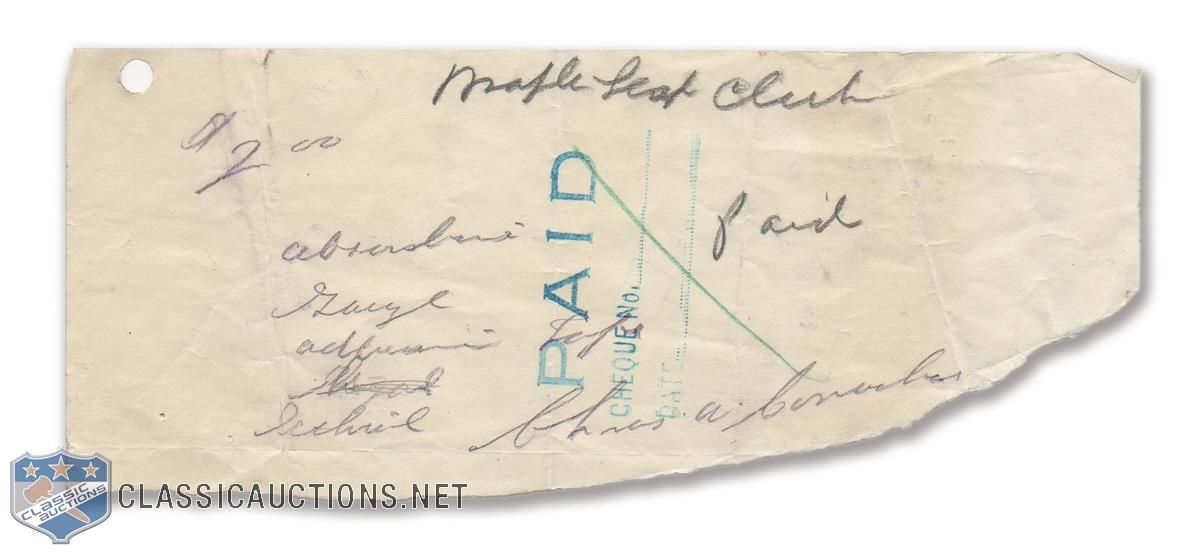 Maple Leaf Club
$7 00
Paid
absorbine
Gauze
adhesive tape
Chas. A. Conacher
PAID
CHEQUE NO.
DATE
CLASSIC AUCTIONS
CLASSICAUCTIONS.NET